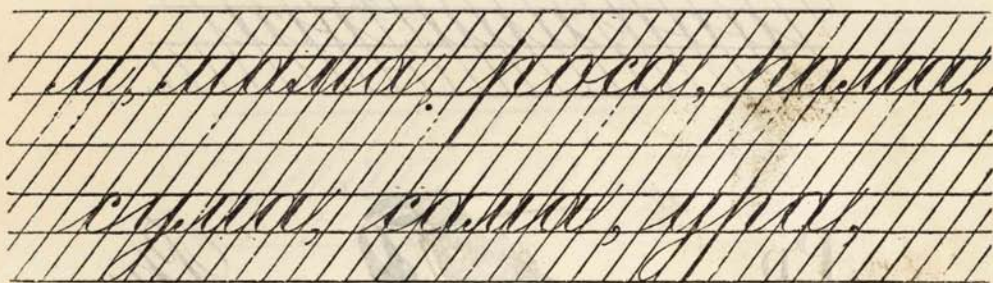 м, мама, роса, рама,
сума, сама, ура,